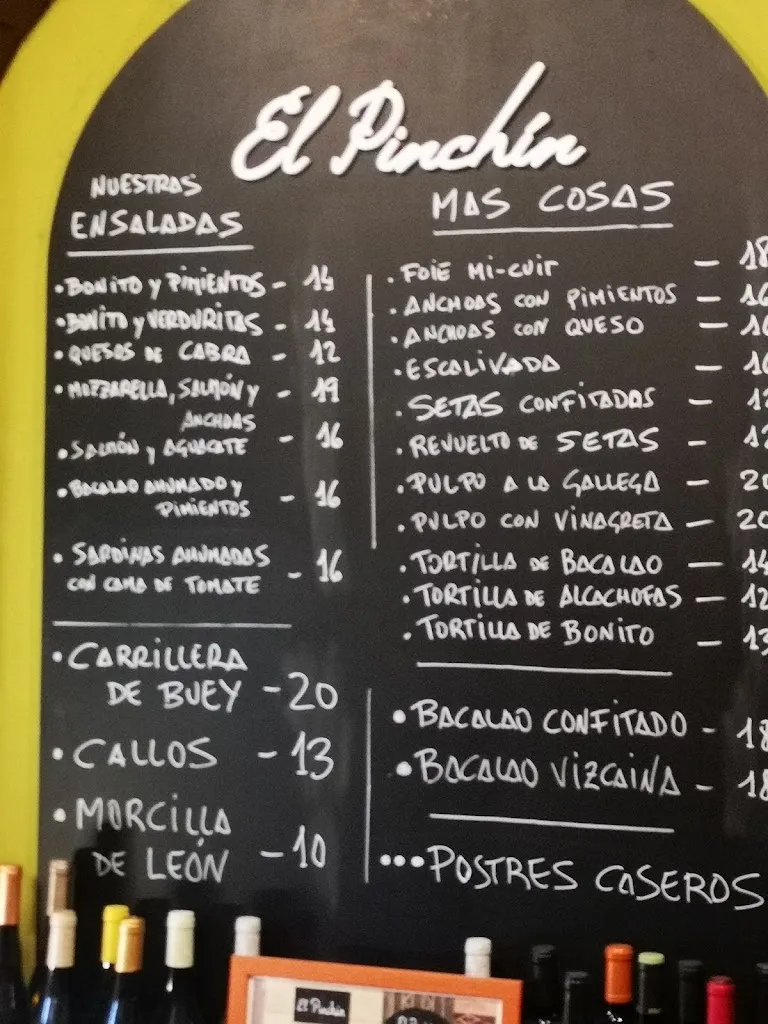 El Pinchín
NUESTRAS
ENSALADAS
• BONITO y PIMIENTOS - 14
• BONITO y VERDURITAS - 14
• QUESOS DE CABRA - 12
• MOZZARELLA, SALMÓN y - 19
ANCHOAS
• SALMÓN y AGUACATE - 16
• BACALAO AHUMADO y
PIMIENTOS - 16
• SARDINAS AHUMADAS
CON CAMA DE TOMATE - 16
• CARRILLERA
DE BUEY - 20
• CALLOS - 13
• MORCILLA
DE LEÓN - 10
MAS COSAS
• FOIE MI-CUIT — 18
• ANCHOAS CON PIMIENTOS — 16
• ANCHOAS CON QUESO —
• ESCALIVADA —
• SETAS CONFITADAS —
• REVUELTO DE SETAS — 12
• PULPO A LA GALLEGA — 20
• PULPO CON VINAGRETA — 20
• TORTILLA DE BACALAO — 14
• TORTILLA DE ALCACHOFAS — 12
• TORTILLA DE BONITO — 13
• BACALAO CONFITADO - 18
• BACALAO VIZCAINA - 18
•••POSTRES CASEROS
El Pinchín